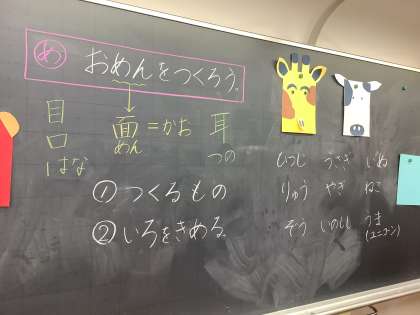 め おめんをつくろう。
目
口
はな
面=かお
めん
耳
つの
①つくるもの
②いろをきめる。
ひつじ うさぎ いぬ
りゅう やぎ ねこ
ぞう いのしし うま
(ユニコーン)